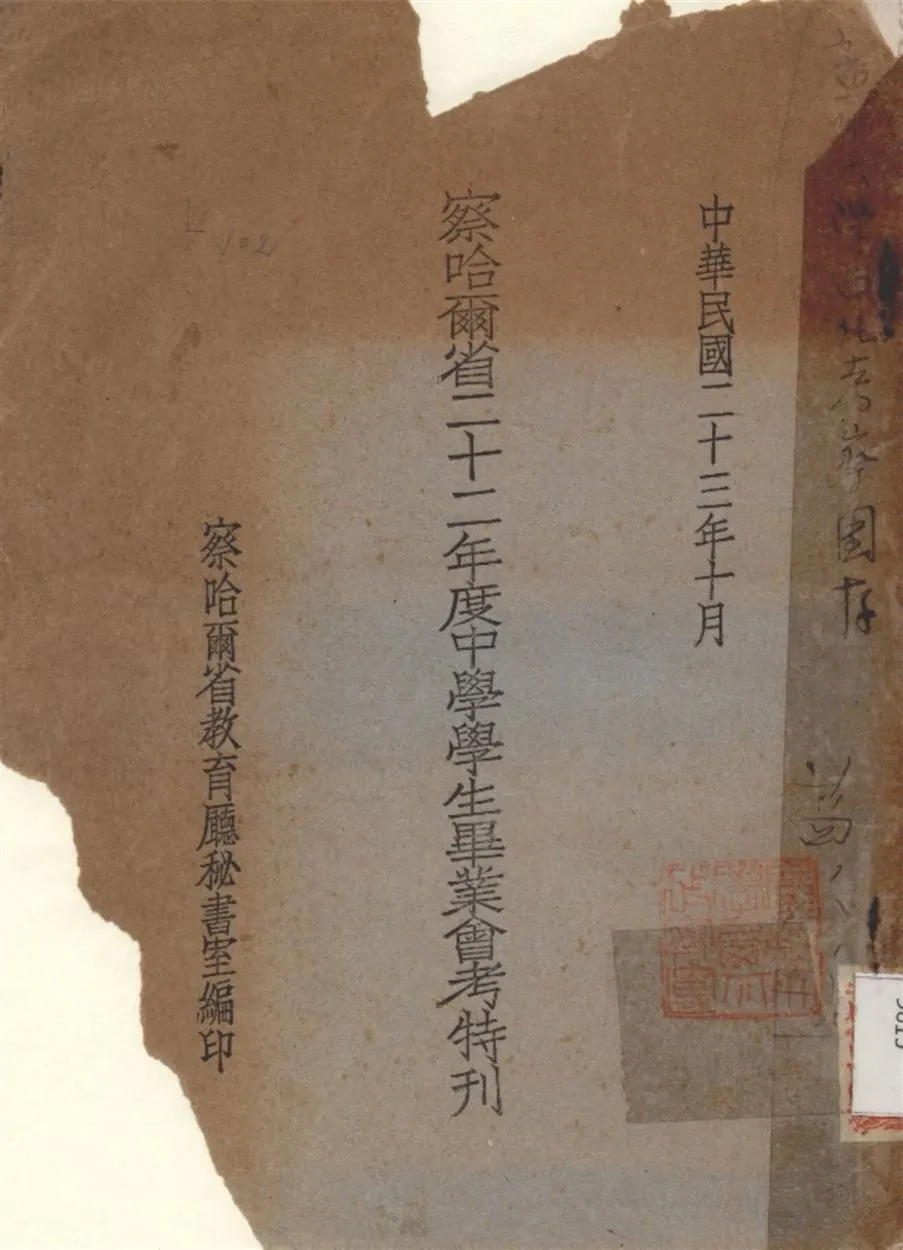 中華民國二十三年十月
察哈爾省二十二年度中學學生畢業會考特刊
察哈爾省教育廳秘書室編印
102